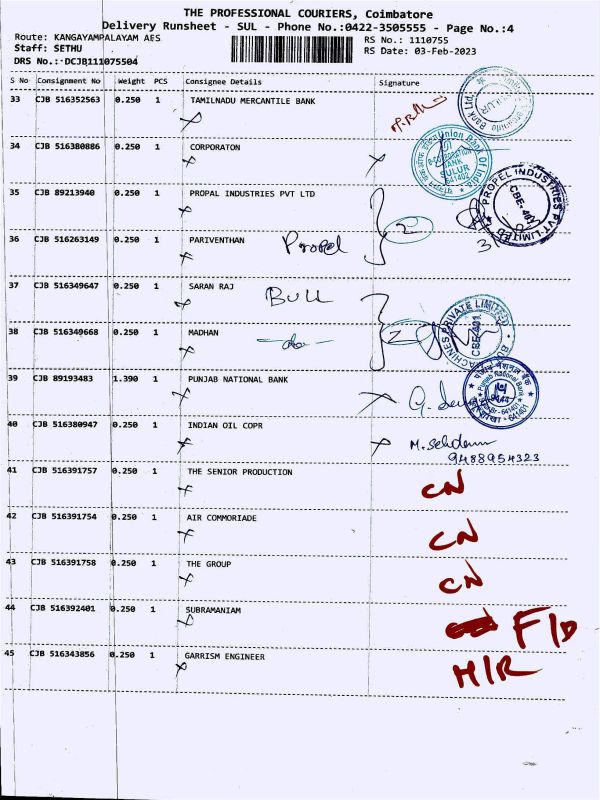 THE PROFESSIONAL COURIERS, Coimbatore
Delivery Runsheet - SUL - Phone No.:0422-3505555 - Page No.:4
Route: KANGAYAMPALAYAM AES
RS No.: 1110755
Staff: SETHU
RS Date: 03-Feb-2023
DRS No.: DCJB111075504
S No Consignment No Weight PCS Consignee Details Signature
33 CJB 516352563 0.250 1 TAMILNADU MERCANTILE BANK
34 CJB 516380886 0.250 1 CORPORATON
Union Bank Of India
BANK
SULUR
641402
35 CJB 89213940 0.250 1 PROPAL INDUSTRIES PVT LTD
2
PROPEL INDUSTRIES PVT. LIMITED
CBE-
3
36 CJB 516263149 0.250 1 PARIVENTHAN Propel
37 CJB 516349647 0.250 1 SARAN RAJ BULL
38 CJB 516349668 0.250 1 MADHAN -do-
MACHINES PRIVATE LIMITED
CBE-401
39 CJB 89193483 1.390 1 PUNJAB NATIONAL BANK
Punjab National Bank
641401
40 CJB 516380947 0.250 1 INDIAN OIL COPR
9488954323
41 CJB 516391757 0.250 1 THE SENIOR PRODUCTION CN
42 CJB 516391754 0.250 1 AIR COMMORIADE CN
43 CJB 516391758 0.250 1 THE GROUP CN
44 CJB 516392401 0.250 1 SUBRAMANIAM F/D
45 CJB 516343856 0.250 1 GARRISM ENGINEER H/R